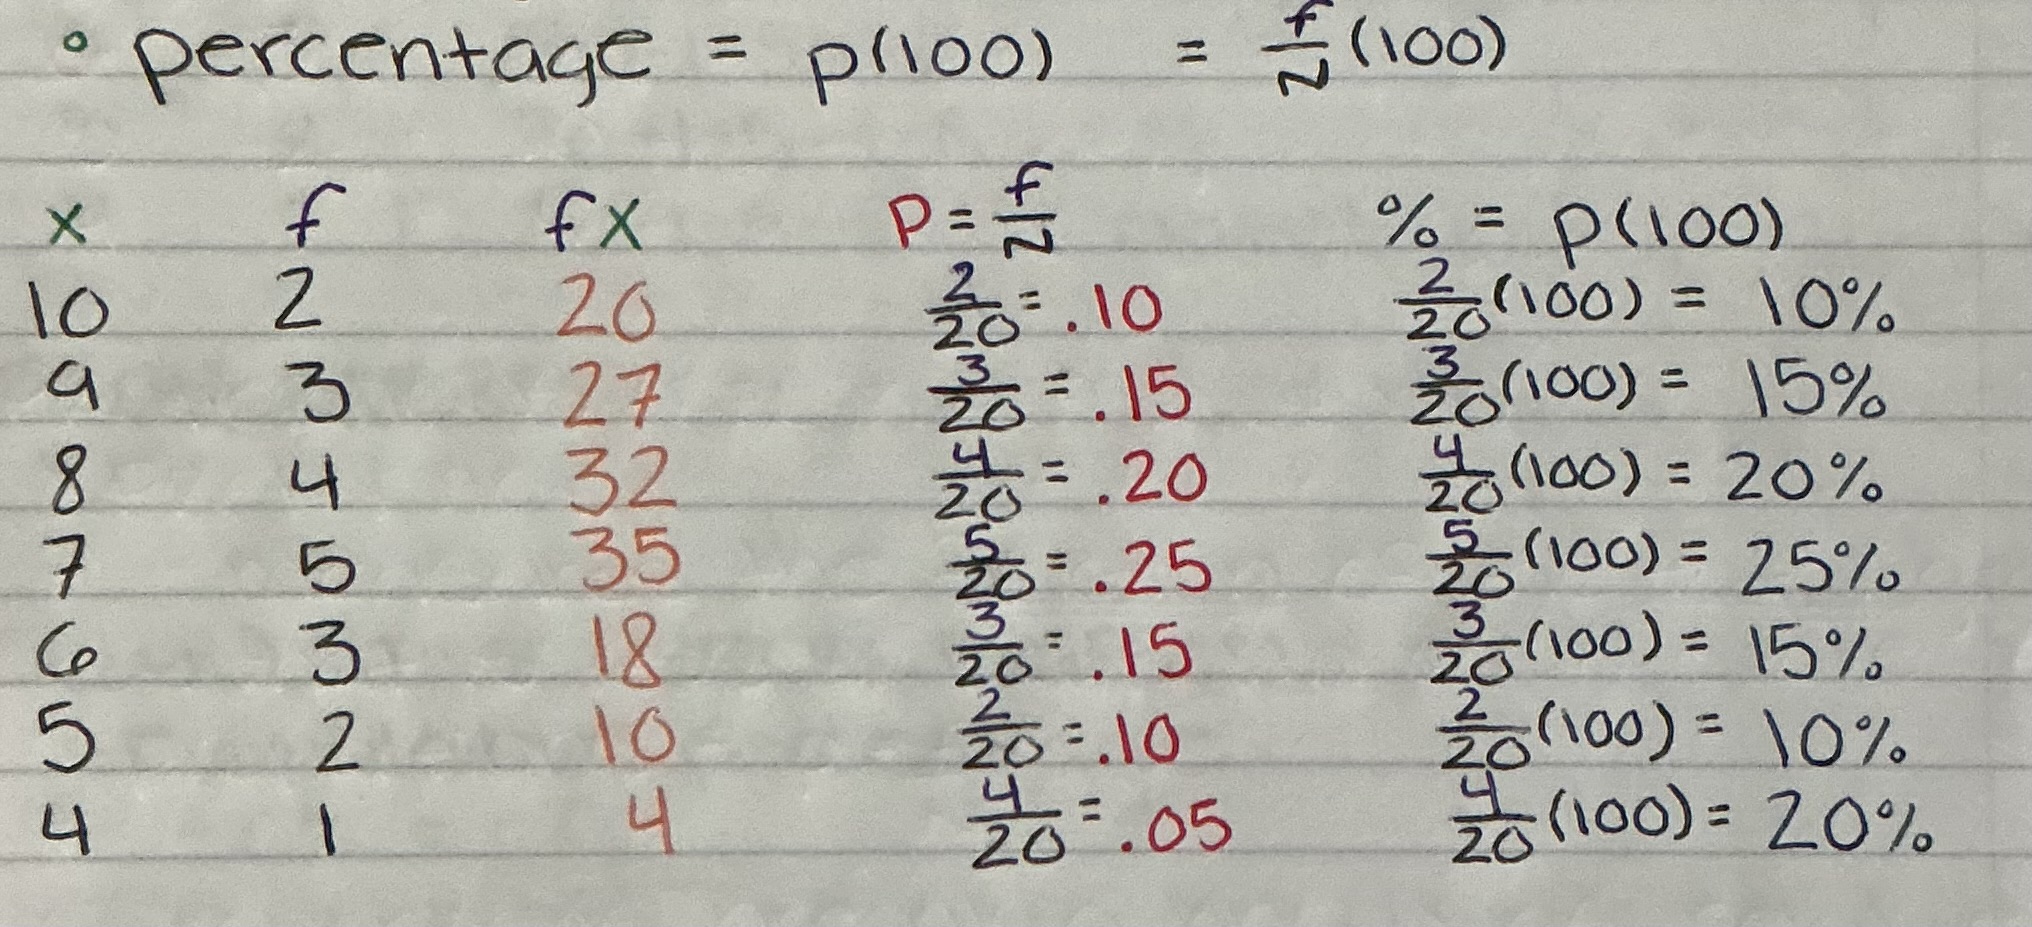 ° percentage = p(100) = f/N (100)
x f fx P = f/N % = p(100)
10 2 20 2/20 = .10 2/20 (100) = 10%
9 3 27 3/20 = .15 3/20 (100) = 15%
8 4 32 4/20 = .20 4/20 (100) = 20%
7 5 35 5/20 = .25 5/20 (100) = 25%
6 3 18 3/20 = .15 3/20 (100) = 15%
5 2 10 2/20 = .10 2/20 (100) = 10%
4 1 4 4/20 = .05 4/20 (100) = 20%